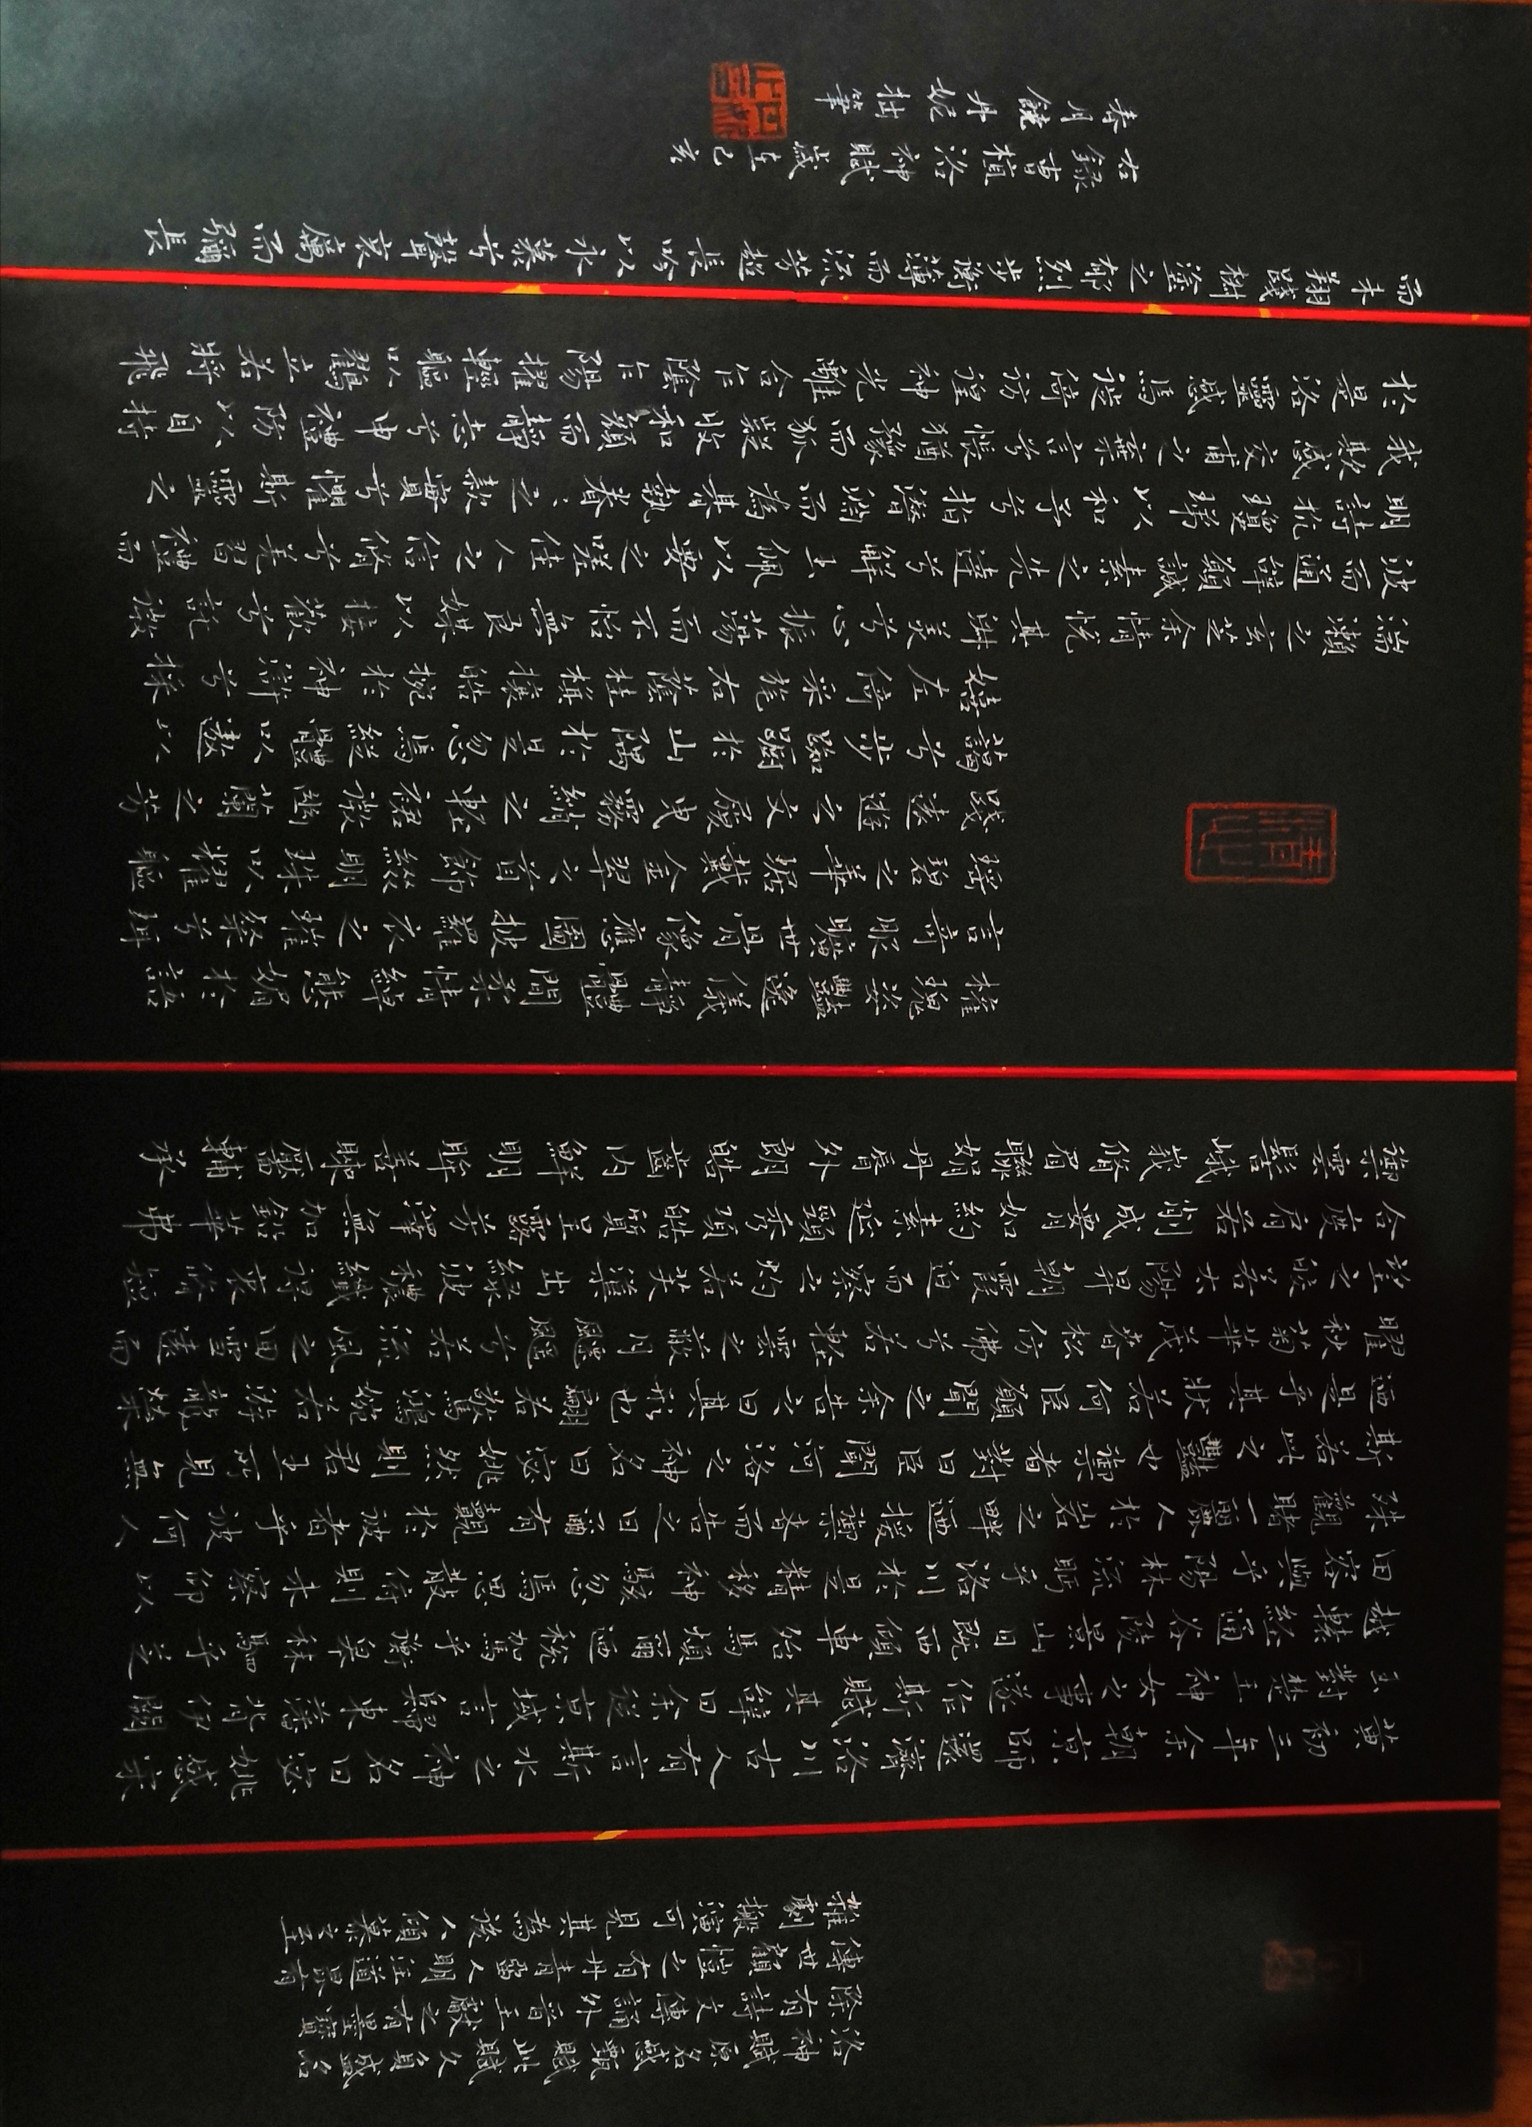 洛神賦原名感甄賦此賦久負盛名
除有詩文傳誦外晉王獻之有墨寶
傳世顧愷之有丹青亞人明汪道昆有
雜劇搬演可見其為後人傾慕之至
黃初三年余朝京師還濟洛川古人有言斯水之神名曰宓妃感宋
玉對楚王神女之事遂作斯賦其辭曰余從京域言歸東藩背伊闕
越轘轅經通谷陵景山日既西傾車殆馬煩爾迺稅駕乎蘅皋秣駟乎芝
田容與乎陽林流眄乎洛川於是精移神駭忽焉思散俯則未察仰以
殊觀睹一麗人於岩之畔迺援御者而告之曰爾有覿於彼者乎彼何人
斯若此之豔也御者對曰臣聞河洛之神名曰宓妃然則君王所見無
迺是乎其狀若何臣願聞之余告之曰其形也翩若驚鴻婉若游龍榮
曜秋菊華茂春松仿佛兮若輕雲之蔽月飄飄兮若流風之回雪遠而
望之皎若太陽昇朝霞迫而察之灼若芙蕖出綠波穠纖得衷修短
合度肩若削成腰如約素延頸秀項皓質呈露芳澤無加鉛華弗
御雲髻峨峨脩眉聯娟丹脣外朗皓齒內鮮明眸善睞靨輔承
權瑰姿豔逸儀靜體閒柔情綽態媚於語
言奇服曠世骨像應圖披羅衣之璀粲兮珥
瑤碧之華琚戴金翠之首飾綴明珠以耀軀
踐遠遊之文履曳霧綃之輕裾微幽蘭之芳
藹兮步踟躕於山隅於是忽焉縱體以遨以
嬉左倚采旄右蔭桂旗攘皓捥於神滸兮採
湍瀨之玄芝余情悅其淑美兮心振蕩而不怡無良媒以接歡兮託微
波而通辭願誠素之先達兮解玉佩以要之嗟佳人之信脩兮羌習禮而
明詩抗瓊珶以和予兮指潛淵而為其執眷々之款實兮懼斯靈之
我欺感交甫之棄言兮悵猶豫而狐疑收和顏而靜志兮申禮防以自持
於是洛靈感焉徙倚彷徨神光離合乍陰乍陽擢輕軀以鶴立若將飛
而未翔踐椒塗之郁烈步蘅薄而流芳超長吟以永慕兮聲哀厲而彌長
右錄曹植洛神賦歲在己亥
春月饒丹妮拙筆